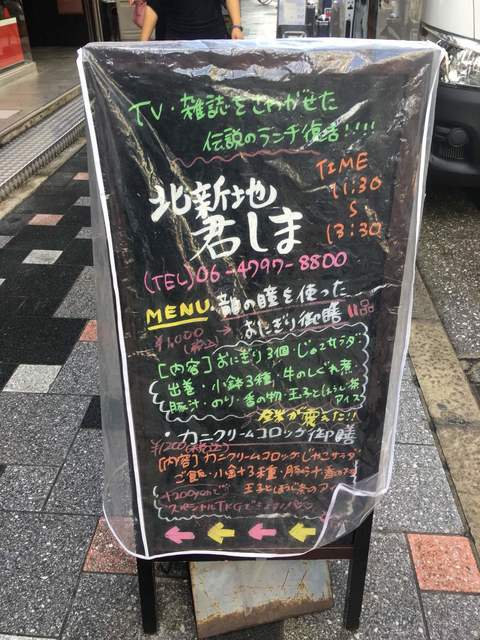 TV・雑誌をさわがせた
伝説のランチ復活!!!!
TIME
11:30
S
13:30
北新地
君しま
(TEL)06-4797-8800
MENU・龍の瞳を使った
¥1,000
(税込)
おにぎり御膳 11品
[内容]おにぎり3個・じゃこサラダ・
出巻・小鉢3種・牛のしぐれ煮
豚汁・のり・香の物・玉子とほうじ茶
アイス
が変えた!!
カニクリームコロッケ御膳
¥1200(税込)
[内容]カニクリームコロッケ・じゃこサラダ
ご飯・小鉢3種・豚汁・香の物
玉子とほうじ茶のアイス
+200yenで
スペシャルTKG